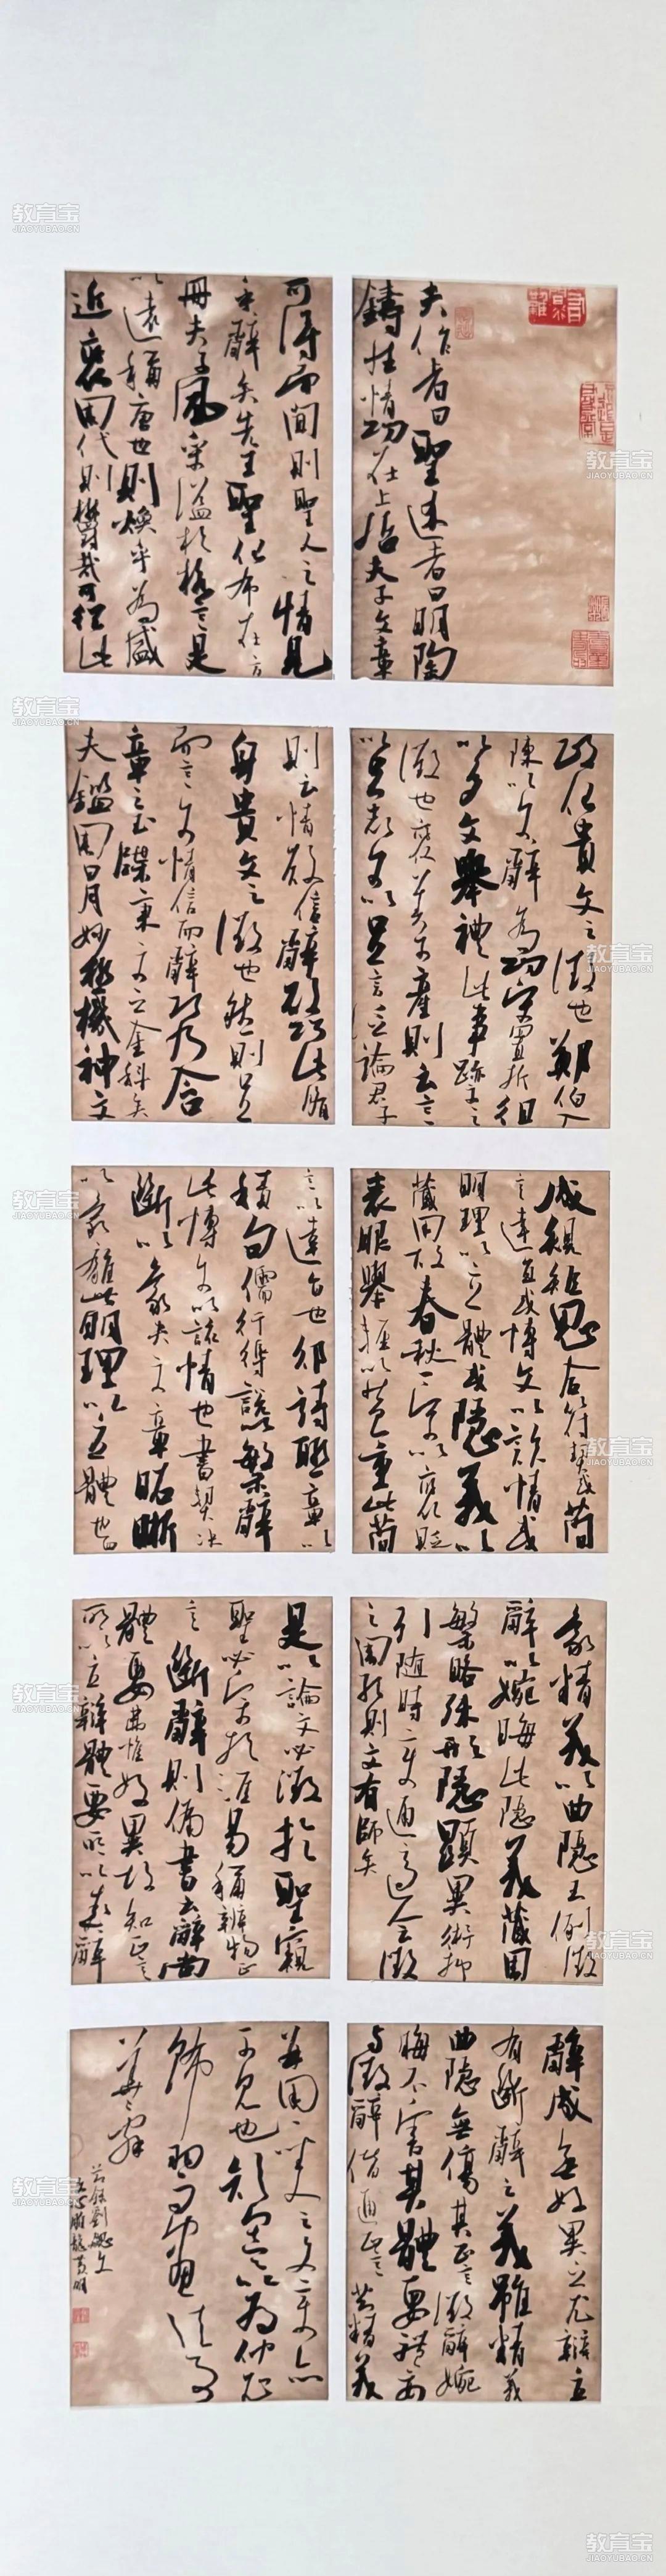 夫作者曰聖述者曰明陶
鑄性情功在上哲夫子文章
可得而聞則聖人之情見
乎辭矣先王聖化布在方
冊夫子風采溢於格言是
以遠稱唐世則煥乎為盛
近褒周代則郁哉可從此
政化貴文之徵也鄭伯入
陳以文辭為功宋置折俎
以多文舉禮此事跡文之
徵也褒美子產則云言
以足志文以足言泛論君子
則云情欲信辭欲巧此脩
身貴文之徵也然則足
而言文情信而辭巧乃含
章之玉牒秉文之金科矣
夫鑑周日月妙極機神文
成規矩思合符契或簡
言達旨或博文以該情或
明理以立體或隱義以
藏用故春秋一字以褒貶
喪服舉輕以苞重此簡
言以達旨也邠詩聯章以
積句儒行縟說以繁辭
此博文以該情也書契決
斷以象夬文章昭晰
以象離此明理以立體也四
象精義以曲隱五例微
辭以婉晦此隱義藏用
繁略殊形隱顯異術抑
引隨時變通適會徵
之周孔則文有師矣
是以論文必徵於聖窺
聖必宗於經易稱辨物正
言斷辭則備書云辭尚
體要弗惟好異故知正言
所以立辯體要所以成辭
辭成無好異之尤辯立
有斷辭之義雖精義
曲隱無傷其正言微辭婉
晦不害其體要體要
與微辭偕通正言共精義
並用聖人之文章亦
可見也顏闔以為仲尼
飾羽而畫徒事
華辭
節錄劉勰文
文心雕龍黃明
教育宝
JIAOYUBAO.CN